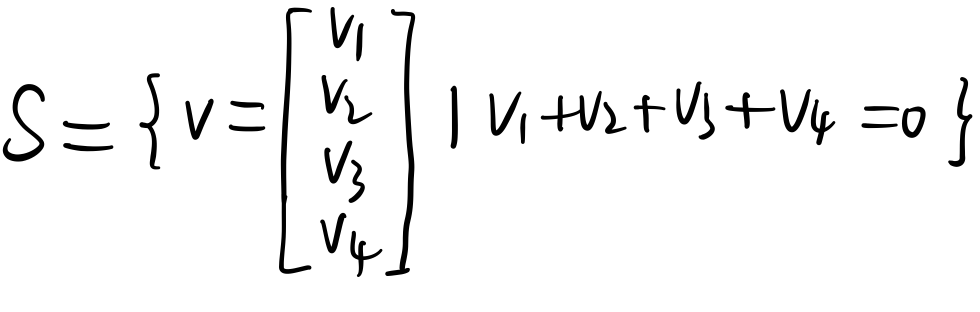 S = { v = [ v₁ v₂ v₃ v₄ ] | v₁ + v₂ + v₃ + v₄ = 0 }